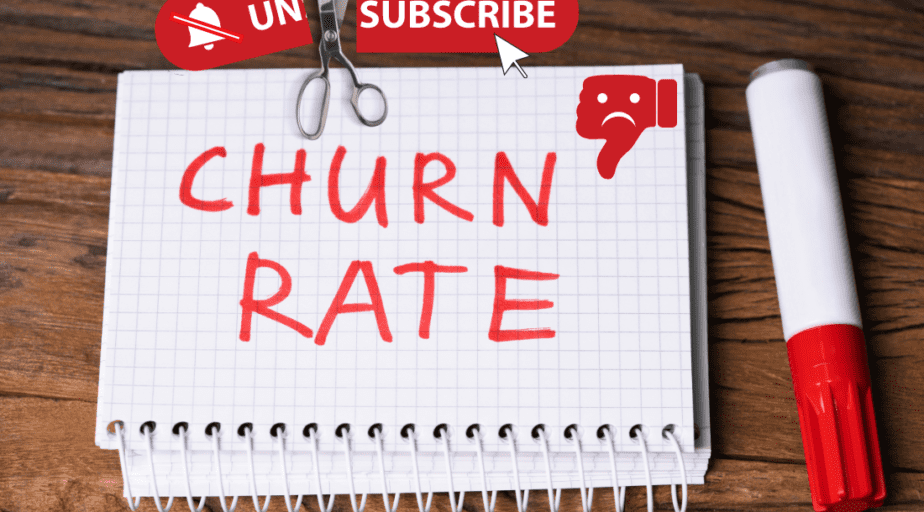 UN SUBSCRIBE
CHURN
RATE